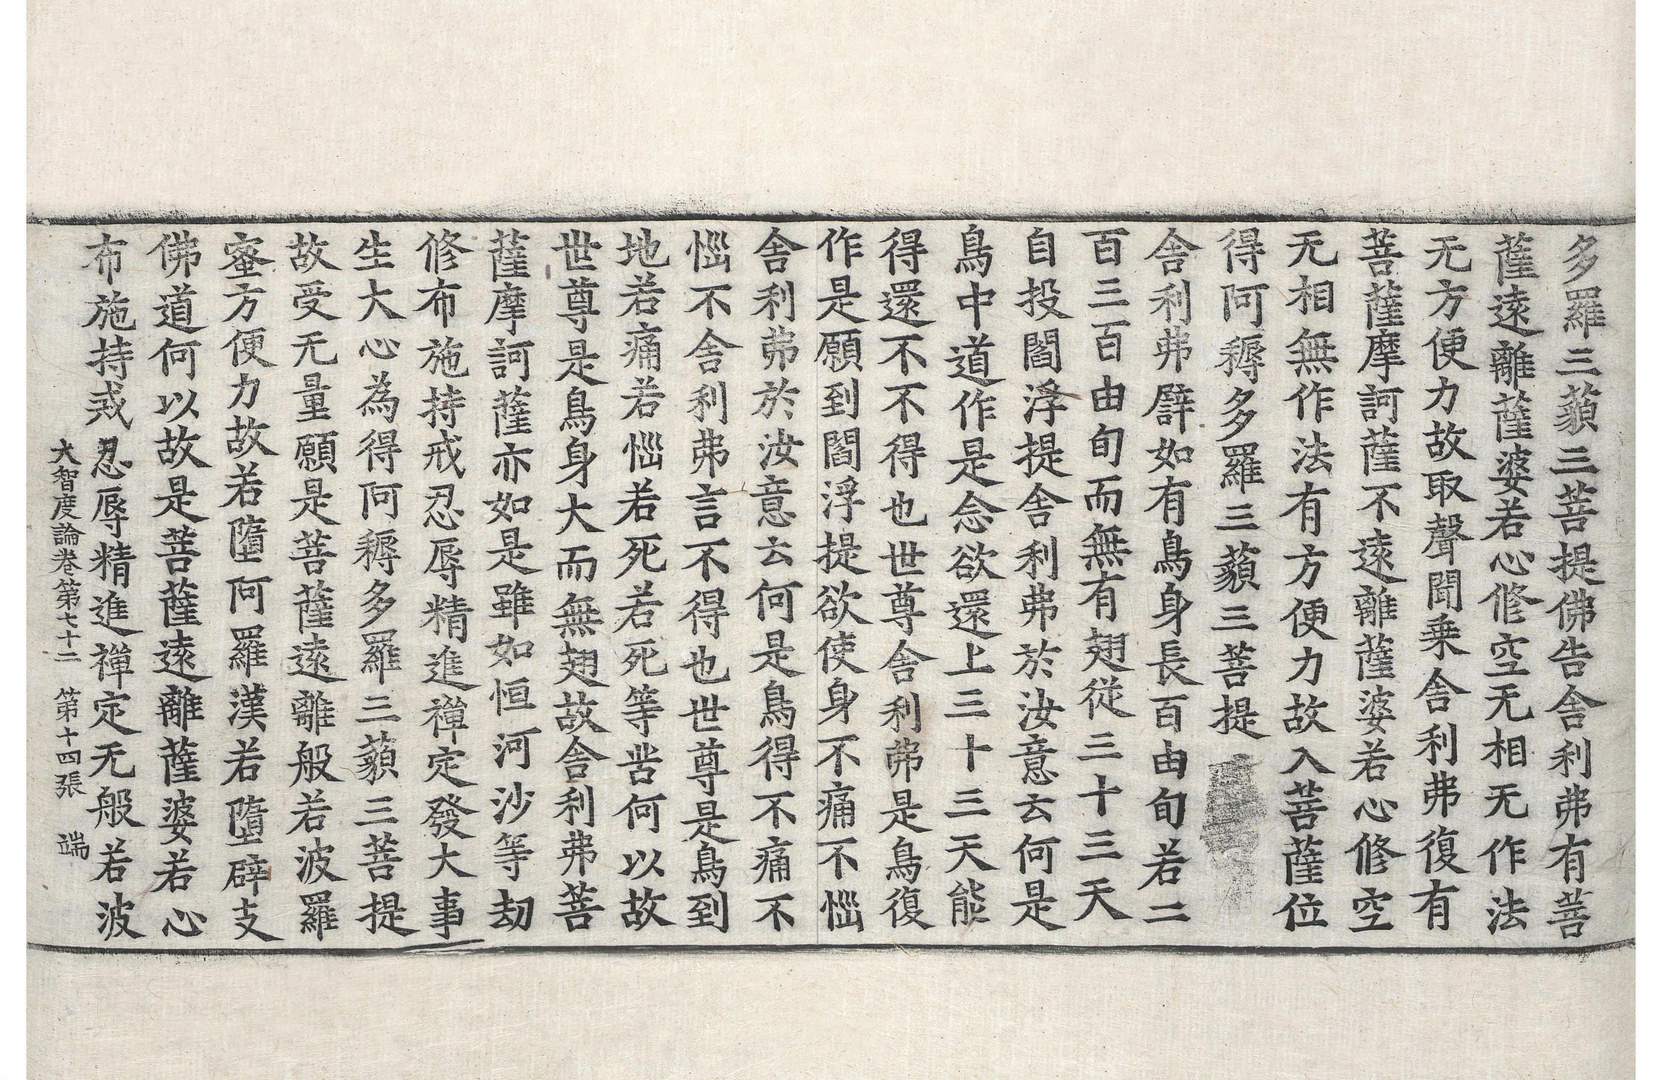 多羅三藐三菩提佛告舍利弗有菩
薩遠離薩婆若心修空无相无作法
无方便力故取聲聞乗舍利弗復有
菩薩摩訶薩不遠離薩婆若心修空
无相無作法有方便力故入菩薩位
得阿耨多羅三藐三菩提
舍利弗譬如有鳥身長百由旬若二
百三百由旬而無有翅從三十三天
自投閻浮提舍利弗於汝意云何是
鳥中道作是念欲還上三十三天能
得還不不得也世尊舍利弗是鳥復
作是願到閻浮提欲使身不痛不惱
舍利弗於汝意云何是鳥得不痛不
惱不舍利弗言不得也世尊是鳥到
地若痛若惱若死若死等苦何以故
世尊是鳥身大而無翅故舍利弗菩
薩摩訶薩亦如是雖如恒河沙等劫
修布施持戒忍辱精進禪定發大事
生大心為得阿耨多羅三藐三菩提
故受无量願是菩薩遠離般若波羅
蜜方便力故若墮阿羅漢若墮辟支
佛道何以故是菩薩遠離薩婆若心
布施持戒忍辱精進禪定无般若波
大智度論卷第七十二　第十四張　端